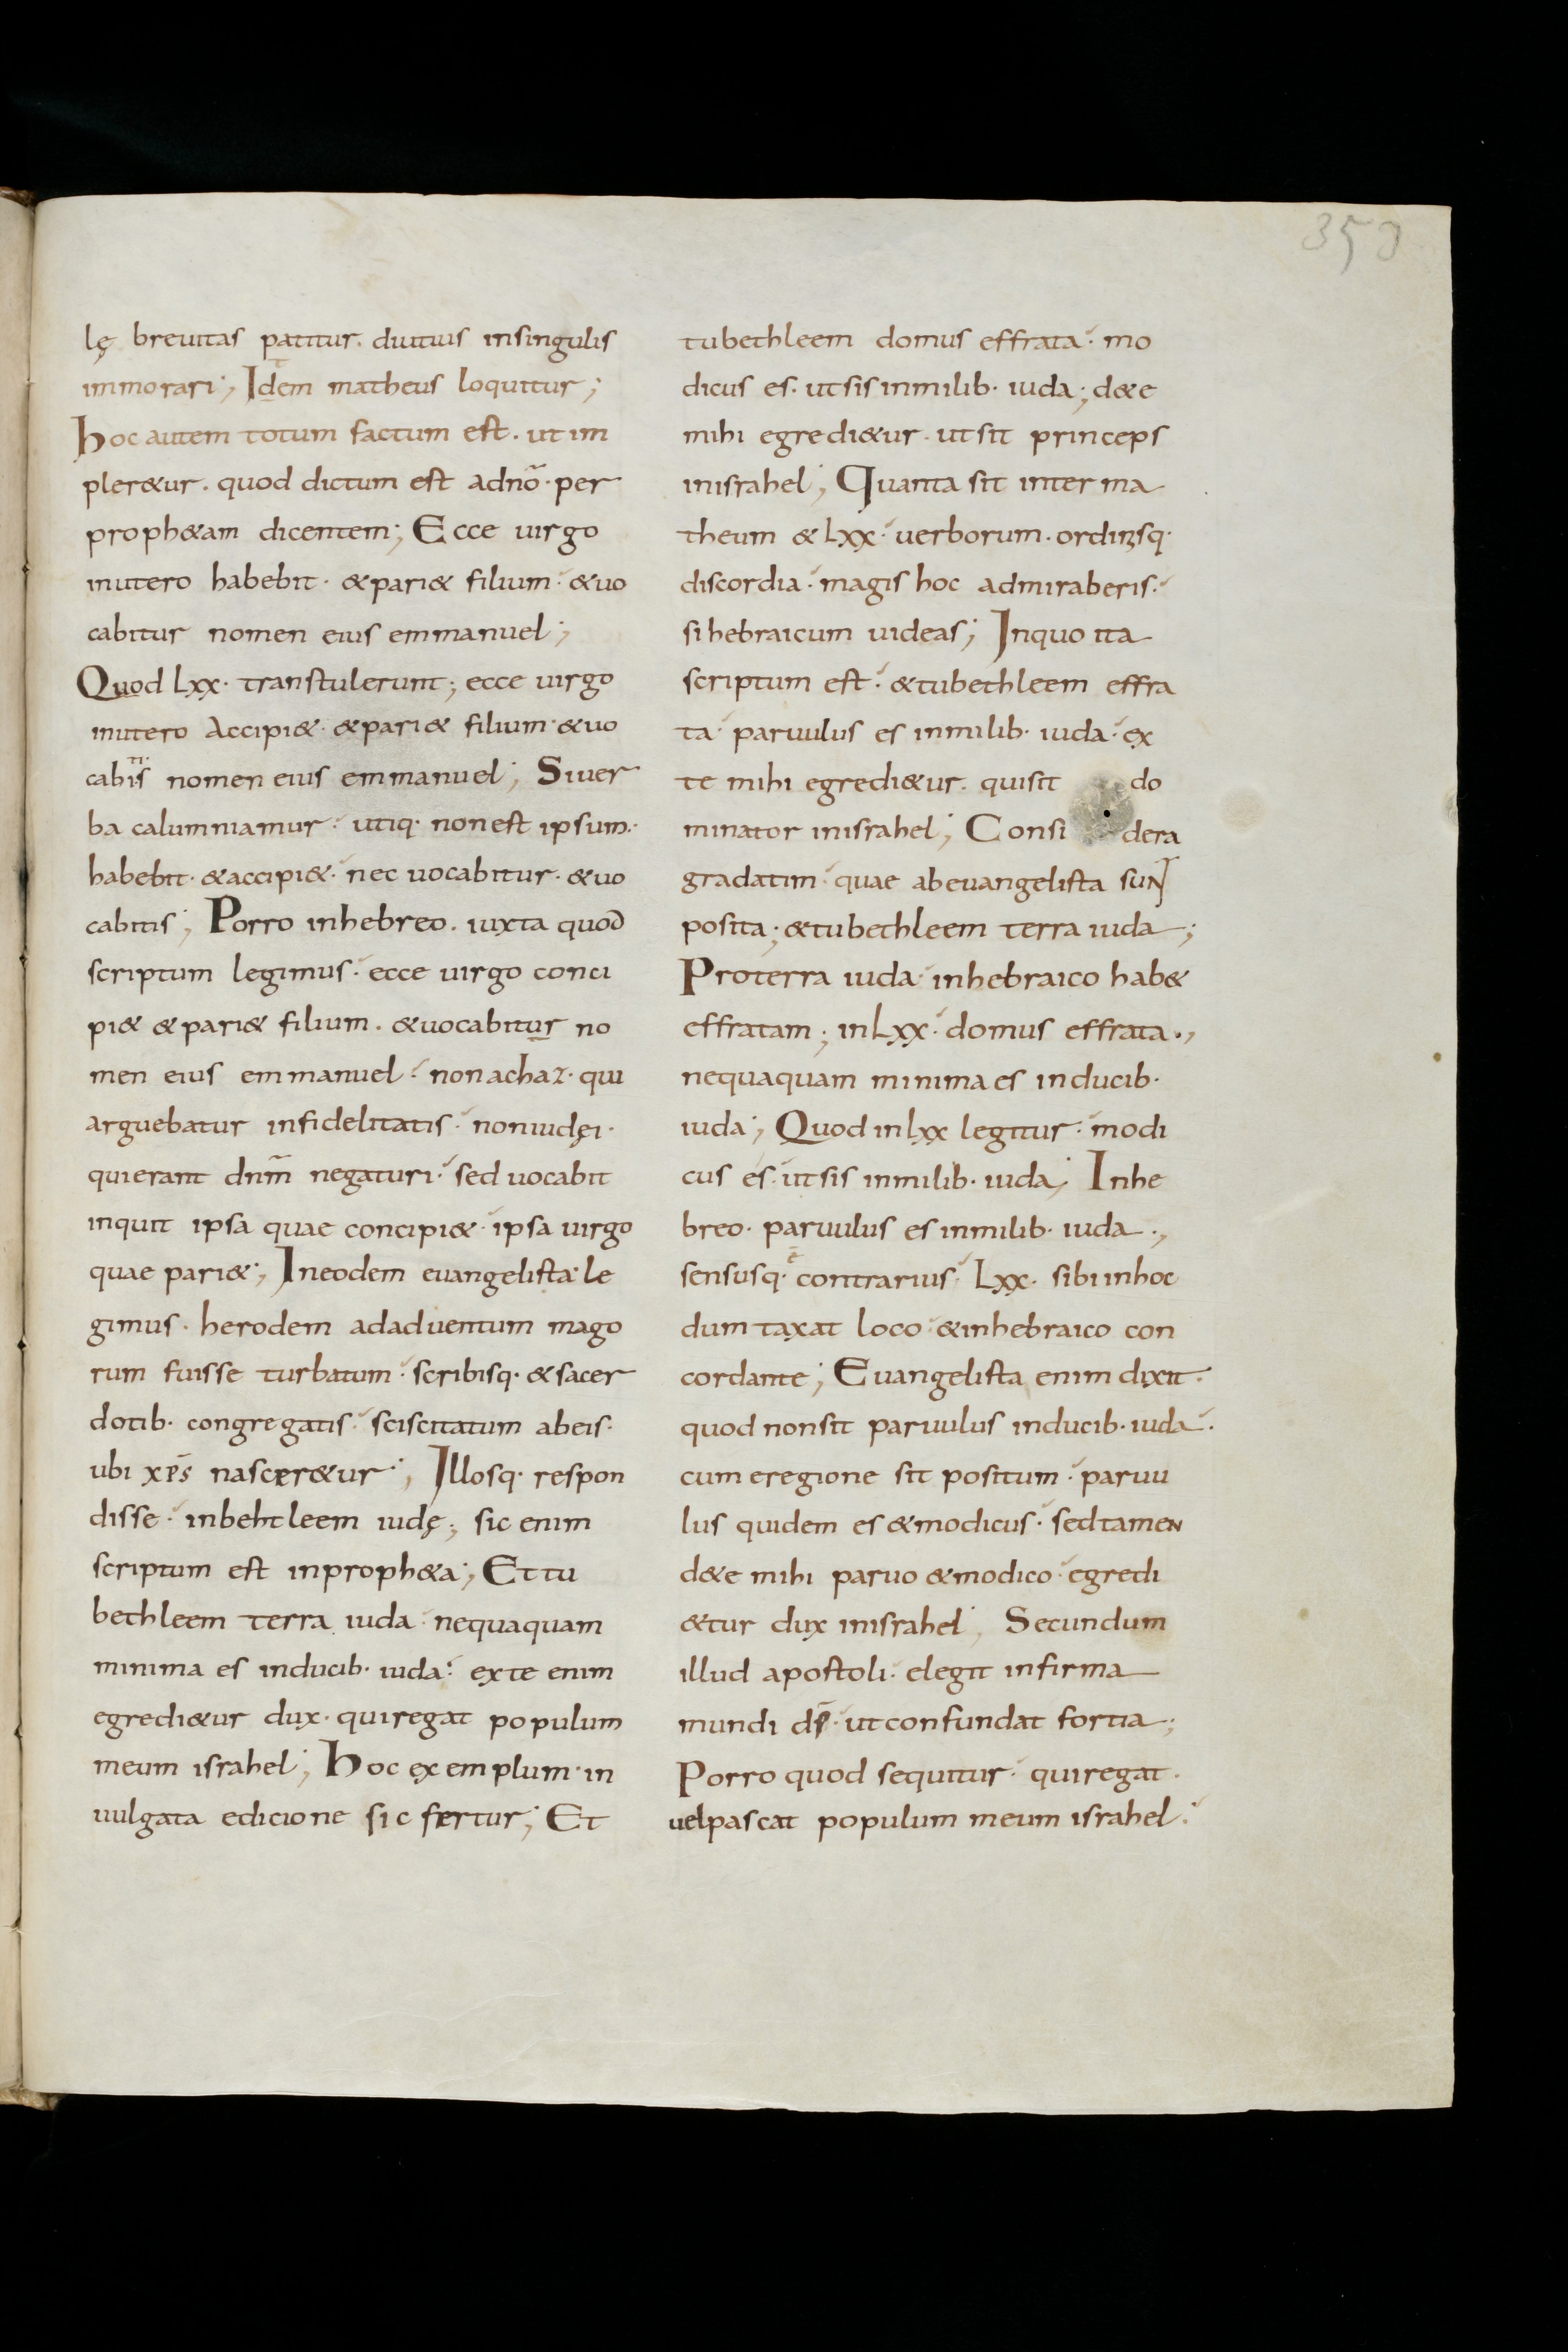 353
lę breuitas patitur. diutius insingulis
immorari; Idem matheus loquitur;
hoc autem totum factum est. ut im
pler&ur. quod dictum est adnō. per
proph&am dicentem; Ecce uirgo
inutero habebit. &pari& filium. &uo
cabitur nomen eius emmanuel;
Quod Lxx. transtulerunt; ecce uirgo
inutero Accipi&. &pari& filium. &uo
cabitis nomen eius emmanuel; Siuer
ba calumniamur. utiq. nonest ipsum.
habebit. &accipi&. nec uocabitur. &uo
cabitis; Porro inhebreo. iuxta quod
scriptum legimus. ecce uirgo conci
pi& &pari& filium. &uocabitur no
men eius emmanuel. nonachaz. qui
arguebatur infidelitatis. noniudęi.
quierant dnm̄ negaturi. sed uocabit
inquit ipsa quae concipi&. ipsa uirgo
quae pari&; Ineodem euangelista le
gimus. herodem adaduentum mago
rum fuisse turbatum. scribisq. &sacer
dotib. congregatis. sciscitatum abeis.
ubi xp̄s nascer&ur; Illosq. respon
disse. inbehtleem iudę; sic enim
scriptum est inproph&a; Et tu
bethleem terra iuda nequaquam
minima es inducib. iuda. exte enim
egredi&ur dux. quiregat populum
meum israhel; hoc exemplum. in
uulgata edicione sic fertur; Et
tubethleem domus effrata. mo
dicus es. utsis inmilib. iuda; d&e
mihi egredi&ur. utsit princeps
inisrahel; Quanta sit inter ma
theum & Lxx. uerborum. ordinisq.
discordia. magis hoc admiraberis.
sihebraicum uideas; Inquo ita
scriptum est. &tubethleem effra
ta paruulus es inmilib. iuda. ex
te mihi egredi&ur. quisit do
minator inisrahel; Consi dera
gradatim. quae abeuangelista sunt
posita; &tubethleem terra iuda;
Proterra iuda. inhebraico hab&
effratam; inLxx. domus effrata.,
nequaquam minima es inducib.
iuda; Quod inlxx legitur. modi
cus es. utsis inmilib. iuda; Inhe
breo. paruulus es inmilib. iuda.,
sensusq. ē contrarius. Lxx. sibi inhoc
dum taxat loco. &inhebraico con
cordante; Euangelista enim dixit.
quod nonsit paruulus inducib. iuda.
cum eregione sit positum. paruu
lus quidem es &modicus. sedtamen
d&e mihi paruo &modico. egredi
&tur dux inisrahel; Secundum
illud apostoli. elegit infirma
mundi ds̄. utconfundat fortia;
Porro quod sequitur. quiregat.
uelpascat populum meum israhel.